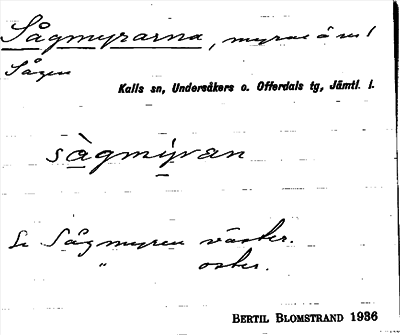 Sågmyrarna, myrar å nv
Sågen
Kalls sn, Undersåkers o. Offerdals tg, Jämtl. l.
sàgmyran
Se Sågmyren väster.
" öster.
BERTIL BLOMSTRAND 1936